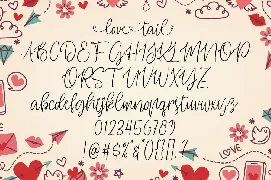 love tail
ABCDEFGHIJKLMNOP
QRSTUVWXYZ
abcdefghijklmnopqrstuvwxyz
0123456789
LOVE